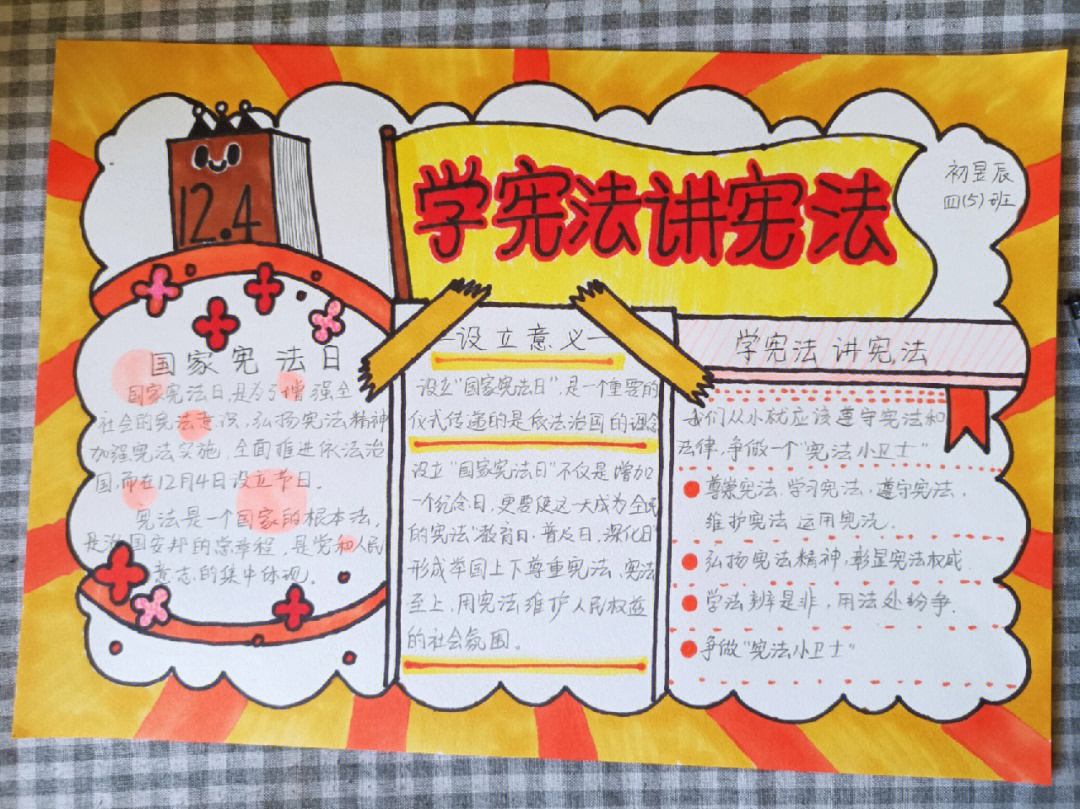 12.4
学宪法讲宪法
初昱辰
四(5)班
国家宪法日
国家宪法日,是为了增强全
社会的宪法意识,弘扬宪法精神
加强宪法实施,全面推进依法治
国,而在12月4日设立节日。
宪法是一个国家的根本法,
是治国安邦的总章程,是党和人民
意志的集中体现。
设立意义
设立"国家宪法日",是一个重要的
仪式传递的是依法治国的理念
设立"国家宪法日"不仅是增加
一个纪念日,更要使这一天成为全民
的宪法"教育日、普及日,深化日"
形成举国上下尊重宪法、宪法
至上,用宪法维护人民权益
的社会氛围。
学宪法讲宪法
我们从小就应该遵守宪法和
法律,争做一个"宪法小卫士"
尊崇宪法,学习宪法,遵守宪法,
维护宪法 运用宪法.
弘扬宪法精神,彰显宪法权威
学法辨是非,用法处纷争.
争做"宪法小卫士"